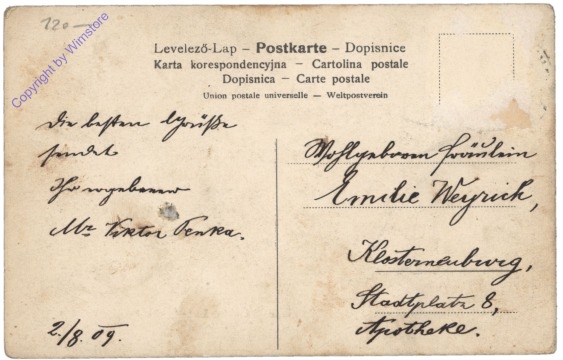 120.—
Copyright by Wimstore
Levelező-Lap – Postkarte – Dopisnice
Karta korespondencyjna – Cartolina postale
Dopisnica – Carte postale
Union postale universelle — Weltpostverein
Die besten Grüße
sendet
Ihr ergebener
Mr Viktor Penka.
2./8. 09.
Wohlgeboren Fräulein
Emilie Weyrich,
Klosterneuburg,
Stadtplatz 8,
Apotheke.